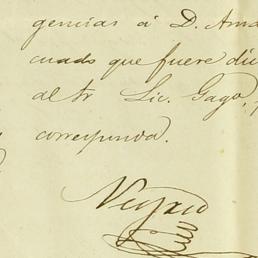 gencias á D. Ama
cuado que fuere di
al Sr Lic. Gago,
corresponda.